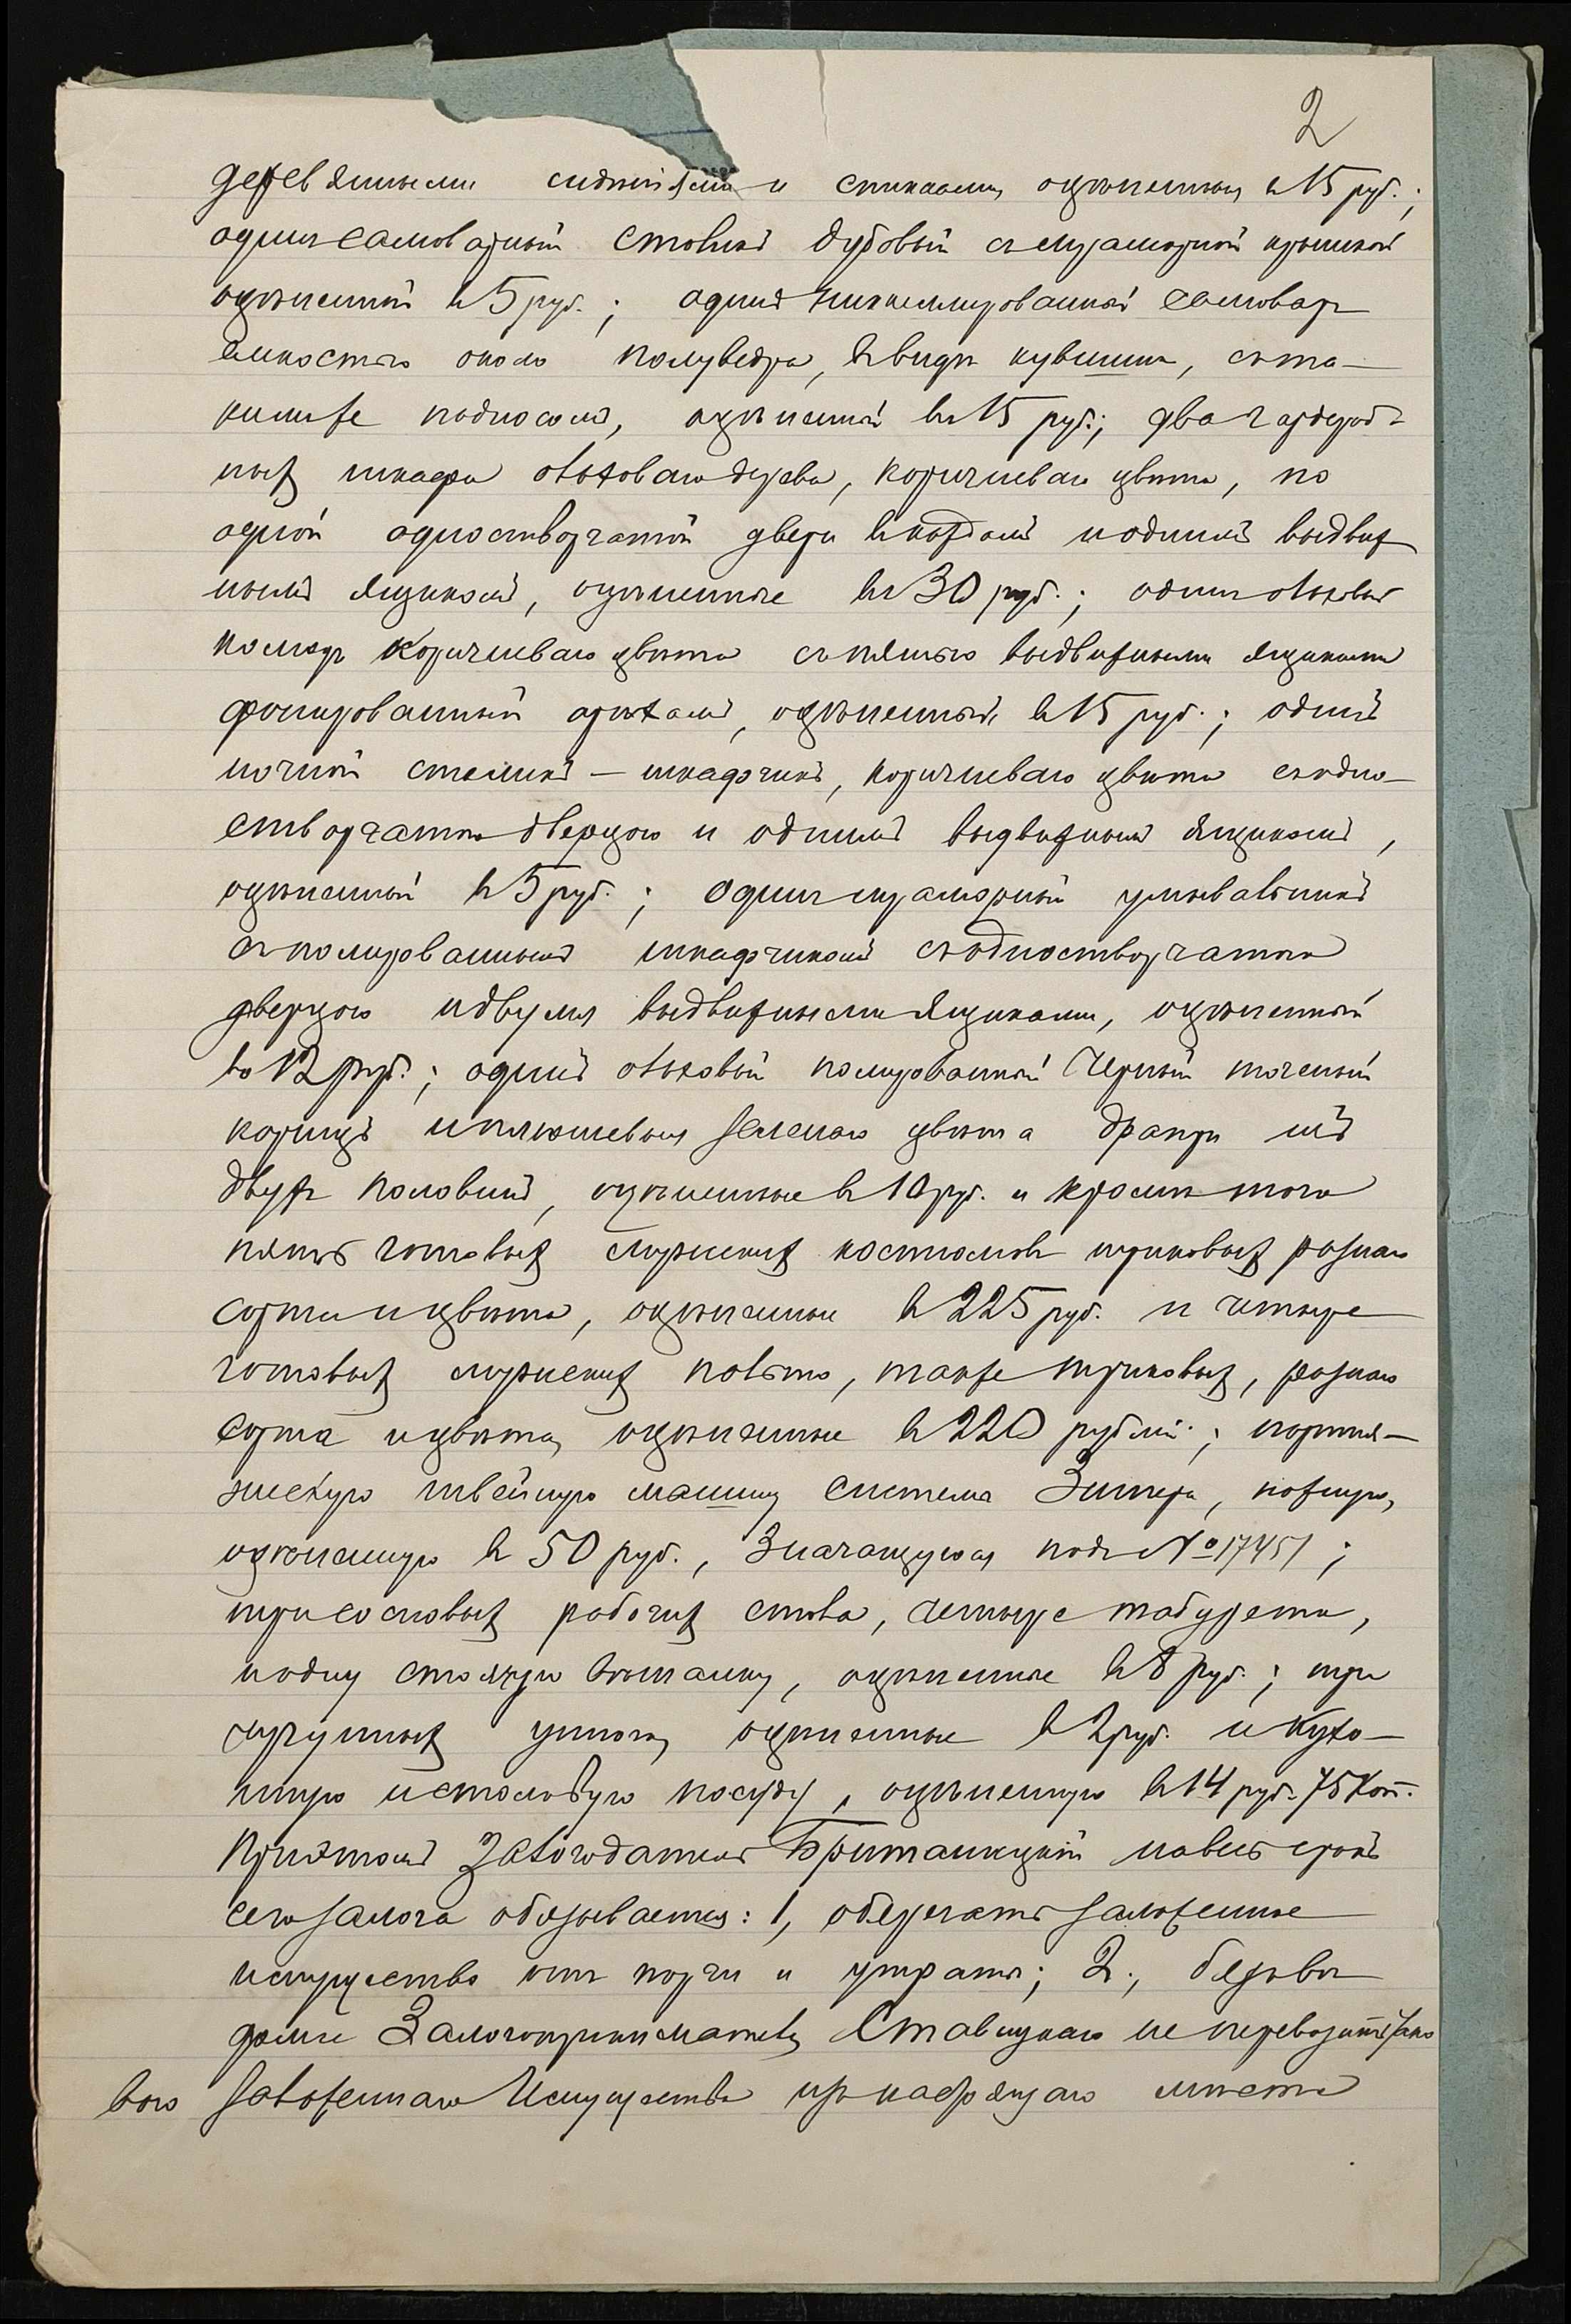 2
деревянными сидѣніями и спинками, оцѣненныя въ 15 руб.;
одинъ самоварный столикъ дубовый съ мраморной крышкой
оцѣненный въ 5 руб.; одинъ никкеллированный самоваръ
емкостью около полуведра, въ видѣ кувшина, съ та-
кимже подносомъ, оцѣненный въ 15 руб.; два гардероб-
ныхъ шкафа ольховаго дерева, коричневаго цвѣта, по
одной одностворчатой двери въ каждомъ и однимъ выдвиж
нымъ ящикомъ, оцѣненные въ 30 руб.; одинъ ольховый
комодъ коричневаго цвѣта съ пятью выдвижными ящиками
фонированный орѣхомъ, оцѣненный въ 15 руб.; одинъ
ночной столикъ – шкафчикъ, коричневаго цвѣта съ одно-
створчатою дверцою и однимъ выдвижнымъ ящикомъ,
оцѣненный въ 5 руб.; одинъ мраморный умывальникъ
съ полированнымъ шкафчикомъ съ одностворчатою
дверцою и двумя выдвижными ящиками, оцѣненный
въ 12 руб.; одинъ ольховый полированный черный точеный
корнизъ и плюшевыя зеленаго цвѣта драпри изъ
двухъ половинъ, оцѣненные въ 10 руб. и кромѣ того
пять готовыхъ мужскихъ костюмовъ триковыхъ разнаго
сорта и цвѣта, оцѣненные въ 225 руб. и четыре
готовыхъ мужскихъ пальто, также триковыхъ, разнаго
сорта и цвѣта, оцѣненные въ 220 рублей; портня-
жескую швейную машину система Зингера, ножную,
оцѣненную въ 50 руб., значащуюся подъ № 17451;
три сосновыхъ рабочихъ стола, четыре табурета,
и одну стоячую вѣшалку, оцѣненные въ 8 руб.; три
чугунныхъ утюга, оцѣненные въ 2 руб. и кухо-
нную и столовую посуду, оцѣненную въ 14 руб. 75 коп.
При этомъ залогодатель Британицкій на весь срокъ
сего залога обязывается: 1, оберегать заложенное
имущество отъ порчи и утраты; 2., безъ вѣ
дома Залогопринимателя Ставицкаго не перевозить тако
вого заложеннаго имущества изъ настоящаго мѣста